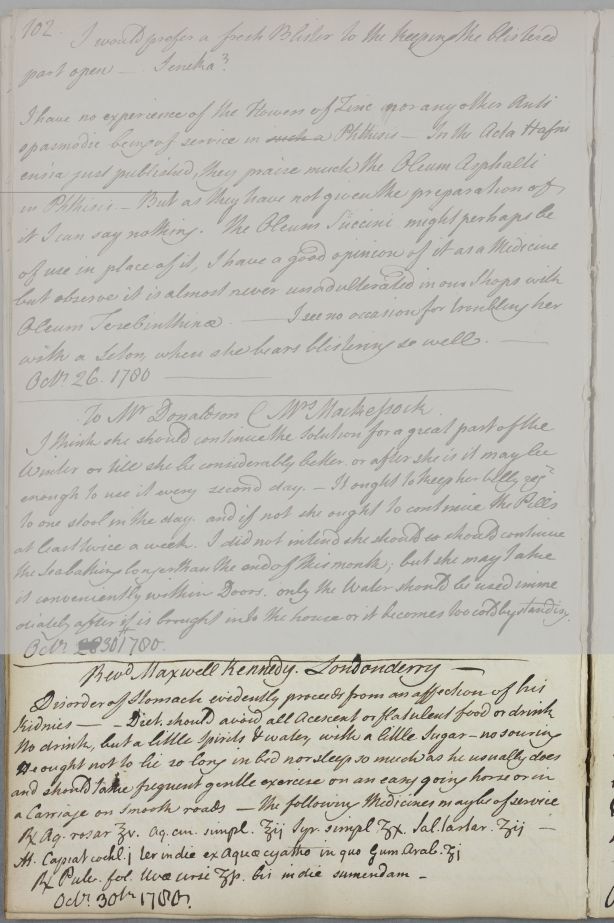 102.
I would prefer a fresh Blister to the keeping the blistered
part open — Seneka ʒ.
I have no experience of the Flowers of Zinc nor any other Anti
spasmodic being of service in such a Phthisis — In the Acta Hafni
ensia just published, they praise much the Oleum Asphalti
in Phthisis — But as they have not given the preparation of
it I can say nothing. The Oleum Succini might perhaps be
of use in place of it, I have a good opinion of it as a Medicine
but observe it is almost never unadulterated in our Shops with
Oleum Terebinthinæ — I see no occasion for troubling her
with a Seton, when she bears blistering so well. —
Octr. 26. 1780
To Mr Donaldson C Mrs Mackessock
I think she should continue the Solution for a great part of the
Winter or till she be considerably better. or after she is it may be
enough to use it every second day. — It ought to keep her belly regr
to one stool in the day. and if not she ought to continue the Pills
at least twice a week. I did not intend she should so should continue
the Sea bathing longer than the end of this month; but she may take
it conveniently within Doors. only the Water should be used imme
diately after it is brought into the house or it becomes too cold by standing.
Octr. 30 1780.
Revd. Maxwell Kennedy. Londonderry —
Disorder of Stomach evidently proceeds from an affection of his
Kidnies — — Diet. should avoid all Acescent or flatulent food or drink
No drink, but a little Spirits & water, with a little Sugar — no souring
He ought not to lie so long in bed nor sleep so much as he usually does
and should take frequent gentle exercise on an easy going horse or in
a Carriage on smooth roads — The following Medicines may be of service
℞ Aq. rosar ℥v. Aq. cin. simpl. ℥ij Syr. simpl ℥x. Sal. tartar. ℥ij —
M. Capiat cochl. j ter in die ex Aquæ cyatho in quo Gum Arab. ℥j
℞ Pulv. fol. Uvæ ursi ℥p. bis in die sumendam —
Octr. 30th 1780.